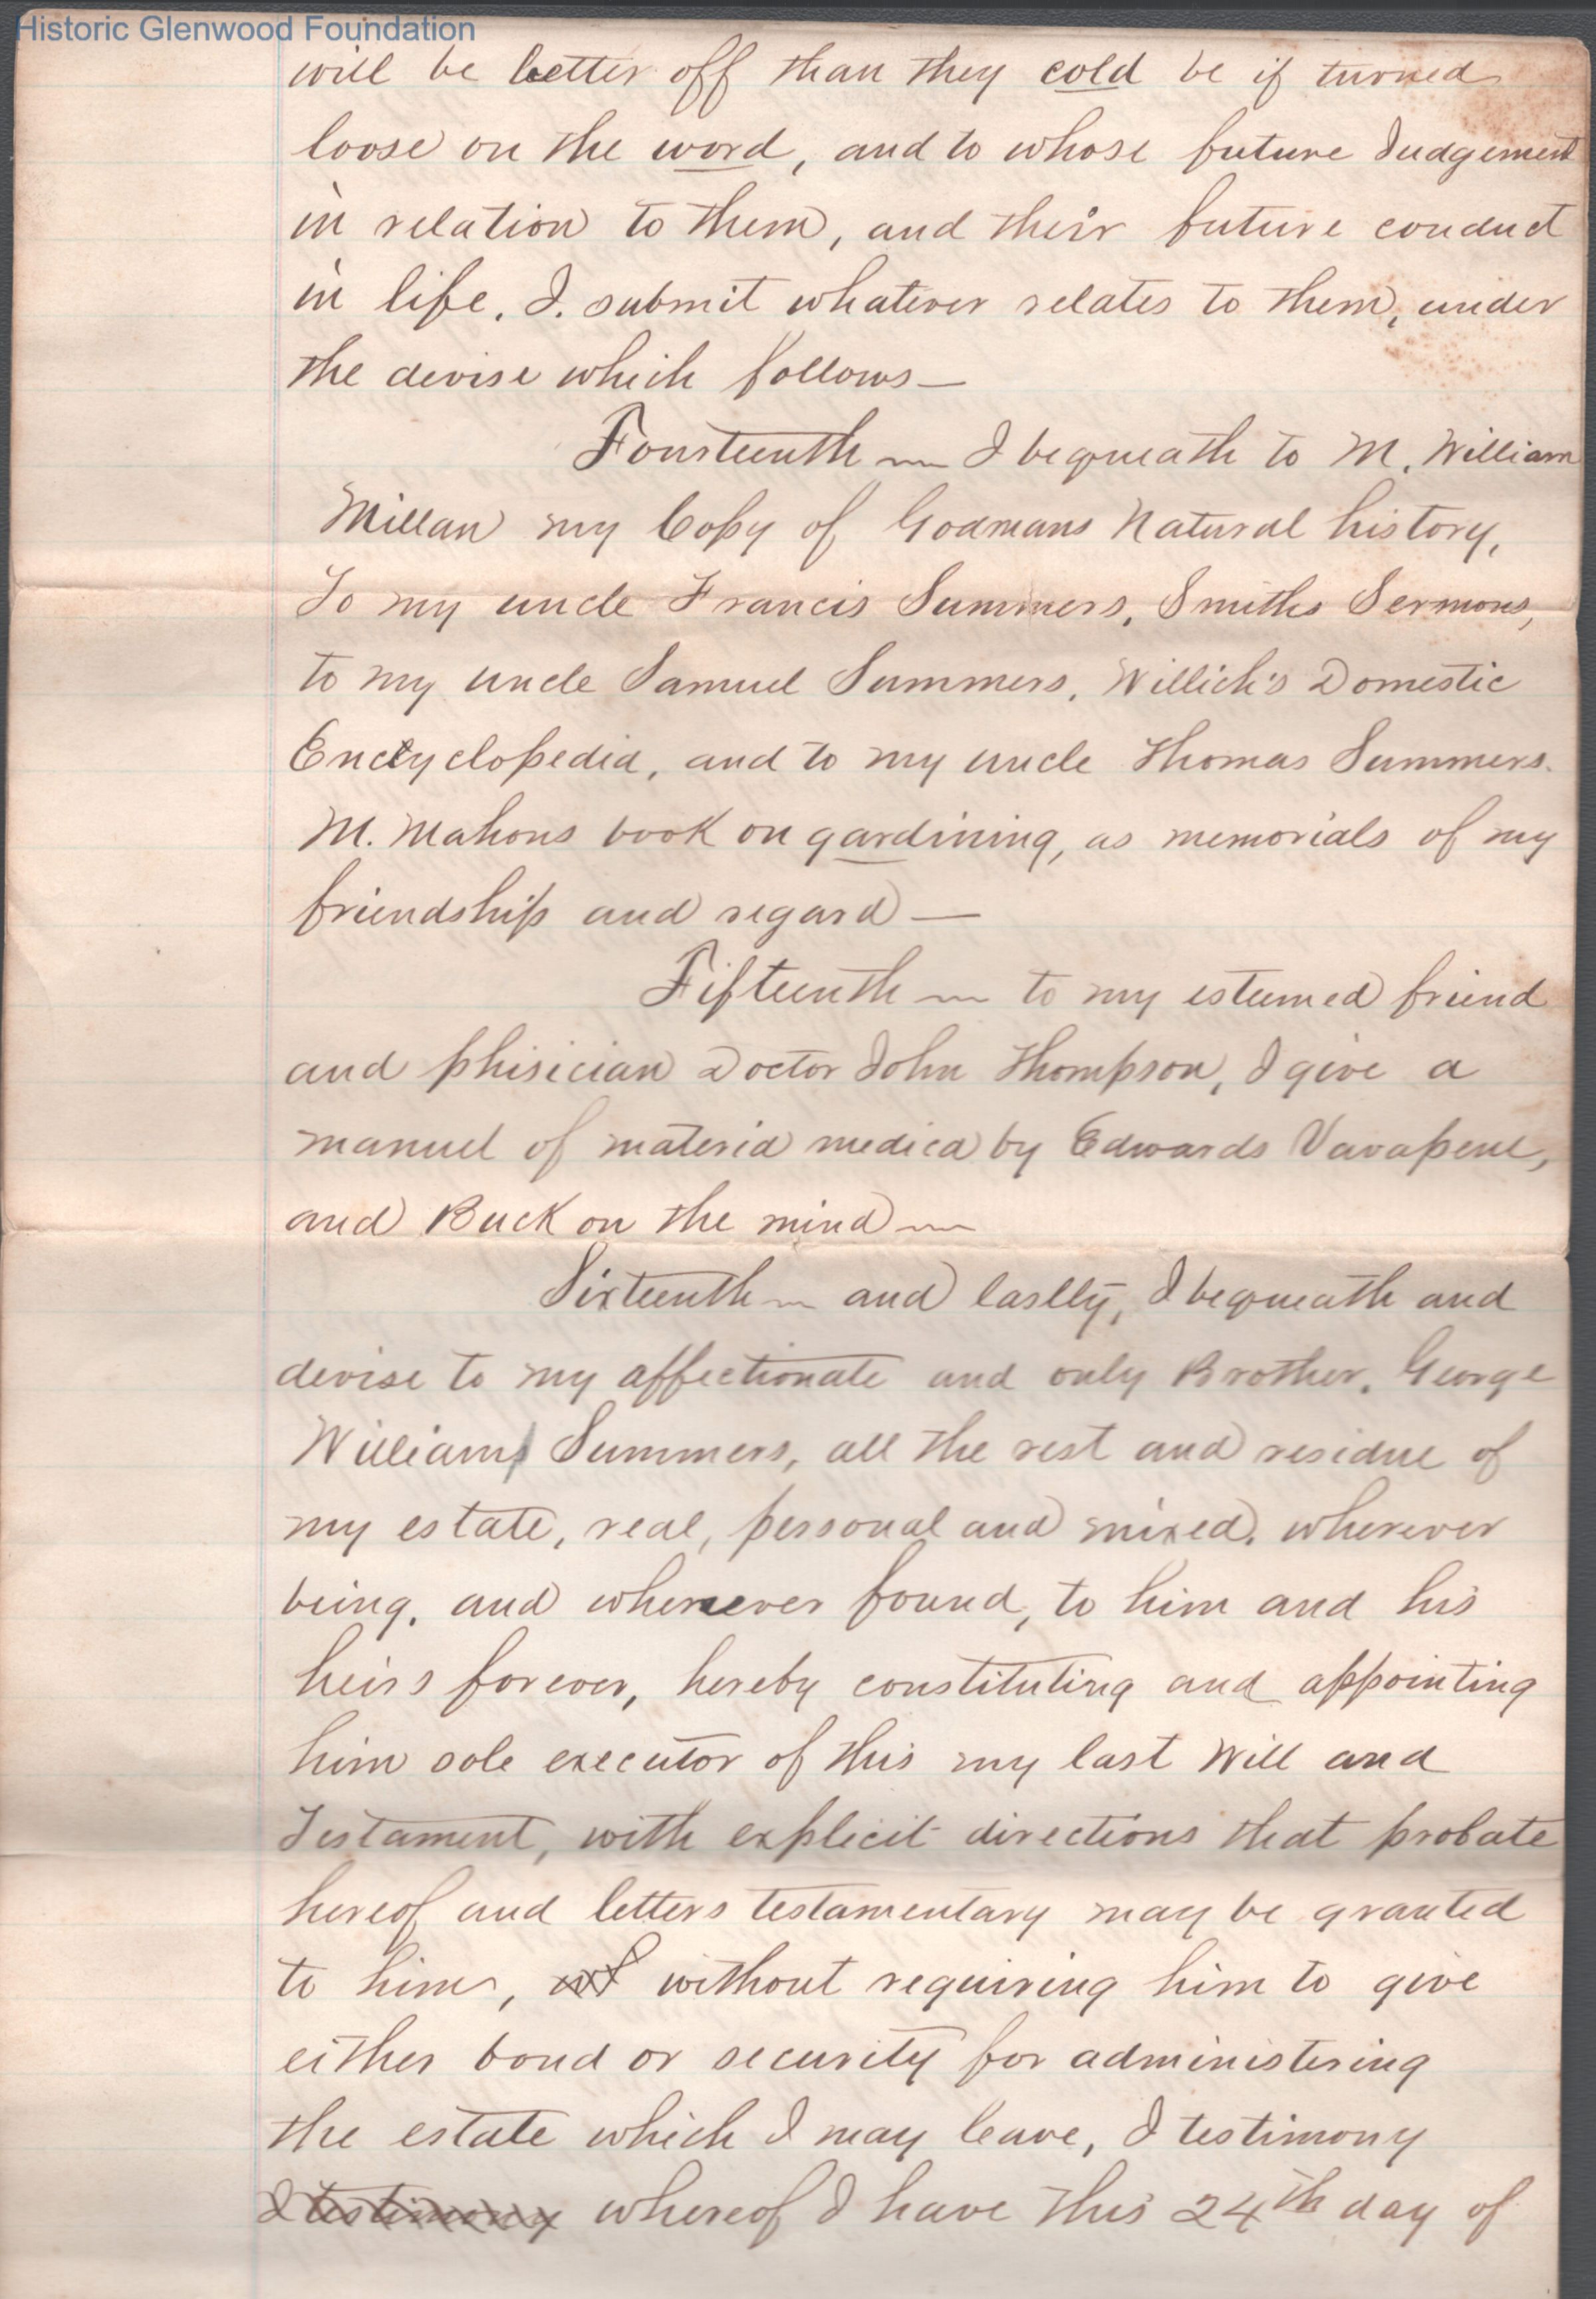 Historic Glenwood Foundation
will be better off than they cold be if turned
loose on the word, and to whose future Judgement
in relation to them, and their future conduct
in life, I. submit whatever relates to them, under
the devise which follows—
Fourteenth — I bequeath to M. William
Millan my Copy of Godmans Natural history,
To my uncle Francis Summers, Smiths Sermons,
to my uncle Samuel Summers, Willich's Domestic
Enctyclopedia, and to my uncle Thomas Summers.
M. Mahons book on gardining, as memorials of my
friendship and regard—
Fifteenth — to my esteemed friend
and phisician Doctor John Thompson, I give a
manuel of materia medica by Edwards Vavapeul,
and Buck on the mind—
Sixteenth — and lastly, I bequeath and
devise to my affectionate and only Brother, George
William Summers, all the rest and residue of
my estate, real, personal and mixed, wherever
being, and whenever found, to him and his
heirs forever, hereby constituting and appointing
him sole executor of this my last Will and
Testament, with explicit directions that probate
hereof and letters testamentary may be granted
to him, without requiring him to give
either bond or security for administering
the estate which I may leave, I testimony
I testimony whereof I have this 24th day of